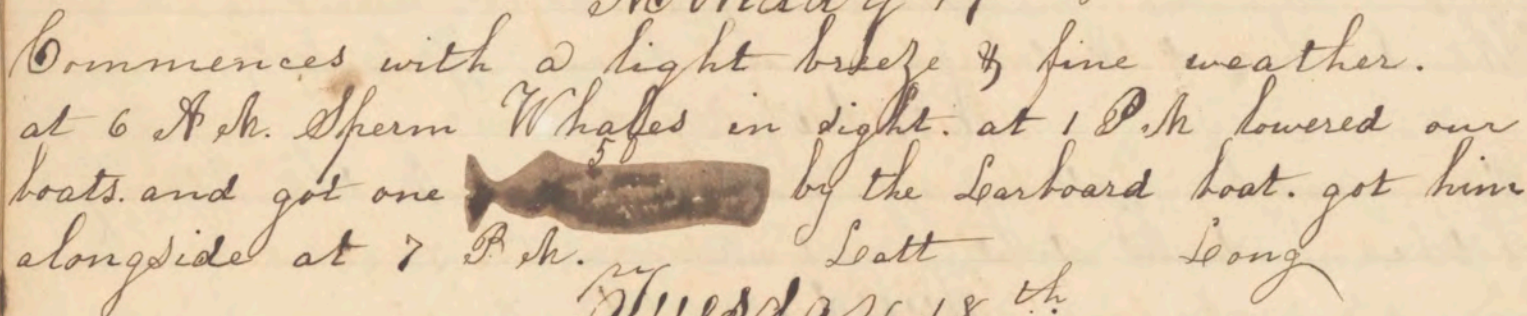 Monday 17
Commences with a light breeze & fine weather.
at 6 A M. Sperm Whales in sight. at 1 P M lowered our
50
boats. and got one by the Larboard boat. got him
alongside at 7 P M. Latt Long
Tuesday 18th